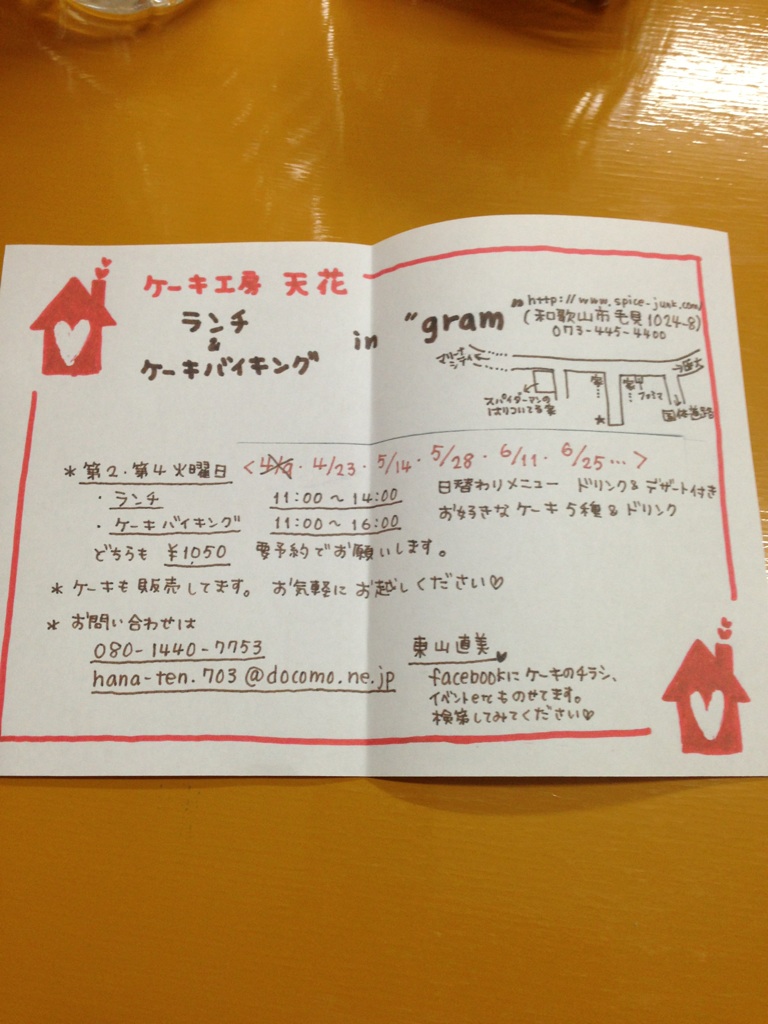 ケーキ工房 天花
ランチ
&
ケーキバイキング
in "gram"
http://www.spice-junk.com/
(和歌山市毛見1024-8)
073-445-4400
マリーナ
シティ
スパイダーマンの
はりついてる家
国体道路
*第2・第4火曜日 <4/9・4/23・5/14・5/28・6/11・6/25…>
・ランチ 11:00～14:00 日替わりメニュー ドリンク&デザート付き
・ケーキバイキング 11:00～16:00 お好きなケーキ5種&ドリンク
どちらも ¥1,050 要予約でお願いします。
*ケーキも販売してます。 お気軽にお越しください♡
*お問い合わせは
080-1440-7753
hana-ten.703@docomo.ne.jp
東山直美
facebookにケーキのチラシ、
イベントetcものせてます。
検索してみてください♡